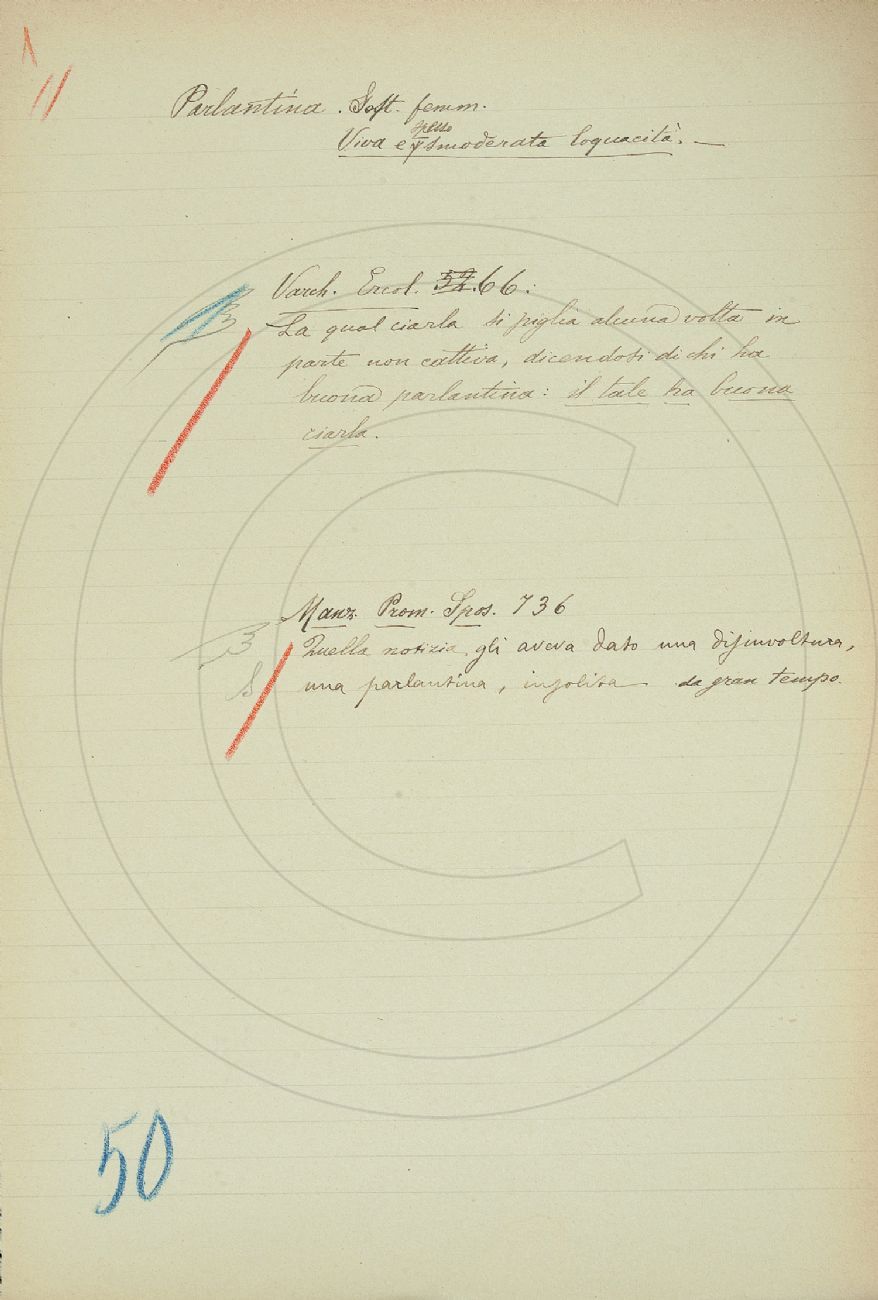 Parlantina. Sost. femm.
Viva e spesso smoderata loquacità. —
Varch. Ercol. 66:
La qual ciarla si piglia alcuna volta in
parte non cattiva, dicendosi di chi ha
buona parlantina: il tale ha buona
ciarla.
Manz. Prom. Spos. 736
Quella notizia gli aveva dato una disinvoltura,
una parlantina, insolita da gran tempo.
50